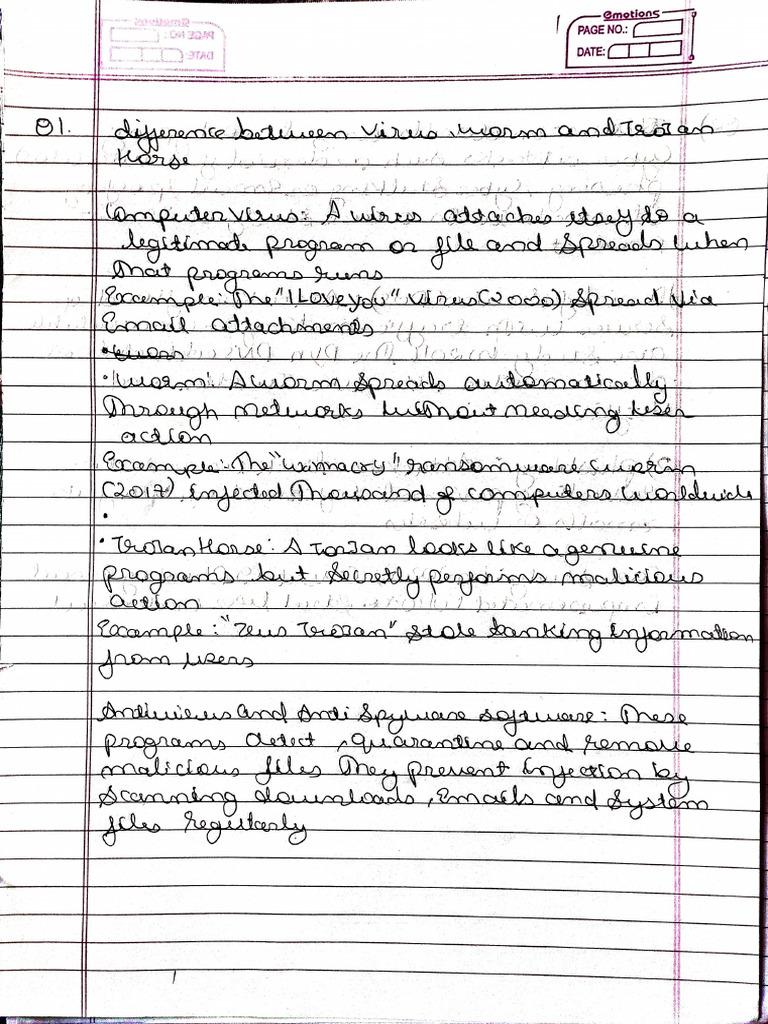 emotions
PAGE NO.:
DATE:
Q1. difference between Virus, worm and Trojan
Horse
Computer Virus: A virus attaches itself to a
legitimate program or file and spreads when
that programs runs
Example: The "I Love you" virus (2000) Spread via
Email attachments
• Worm: A worm spreads automatically
Through networks without needing user
action
Example: The "wannacry" ransomware worm
(2017) infected Thousand of computers worldwide
•
• Trojan Horse: A Torjan looks like a genuine
programs but secretly performs malicious
action
Example: "Zeus Trojan" Stole banking information
from users
Antivirus and Anti Spyware software: These
programs detect, quarantine and remove
malicious files They prevent infection by
Scanning downloads, Emails and System
files regularly